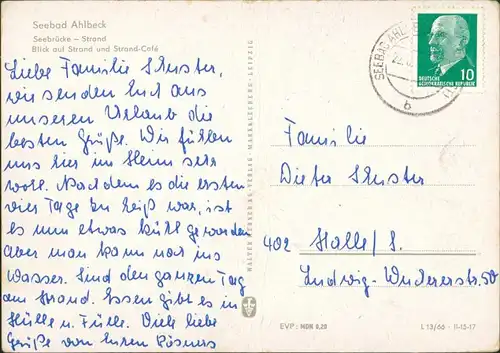 Seebad Ahlbeck
Seebrücke — Strand
Blick auf Strand und Strand-Café
Liebe Familie Schuster,
wir senden Euch aus
unseren Urlaub die
besten Grüße. Wir fühlen
uns hier im Heim sehr
wohl. Nachdem es die ersten
vier Tage zu heiß war, ist
es nun etwas kühl geworden
aber man kann noch ins
Wasser. Sind den ganzen Tag
am Strand. Essen gibt es in
Hülle u. Fülle. Viele liebe
Grüße von Euren Rösners
WALTER KUNSTVERLAG MARKKLEEBERG-LEIPZIG
SEEBAD AHL
b
DEUTSCHE
DEMOKRATISCHE REPUBLIK
10
Familie
Dieter Schuster
402 Halle/S.
Ludwig-Wuchererstr. 50
EVP: MDN 0,20
L 13/66 · II-13-17